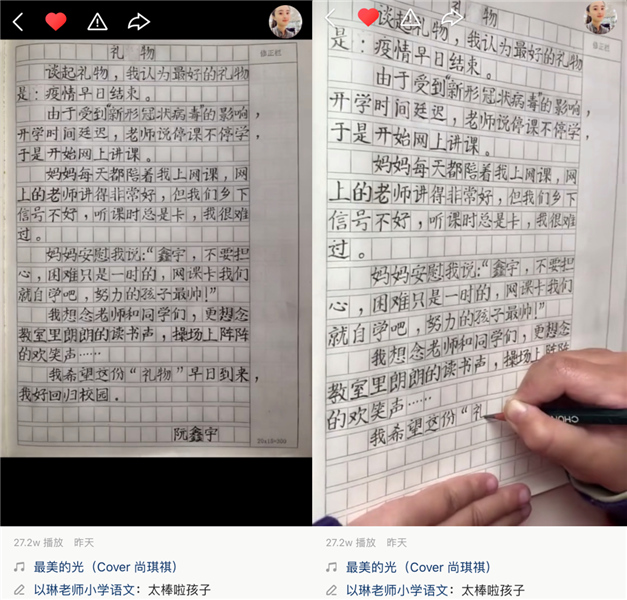 礼 物
修正栏
谈起礼物，我认为最好的礼物
是：疫情早日结束。
由于受到"新形冠状病毒"的影响，
开学时间廷迟，老师说停课不停学，
于是开始网上讲课。
妈妈每天都陪着我上网课，网
上的老师讲得非常好，但我们乡下
信号不好，听课时总是卡，我很难
过。
妈妈安慰我说："鑫宇，不要担
心，困难只是一时的，网课卡我们
就自学吧，努力的孩子最帅！"
我想念老师和同学们，更想念
教室里朗朗的读书声，操场上阵阵
的欢笑声……
我希望这份"礼物"早日到来，
我好回归校园。
阮鑫宇
27.2w 播放 昨天
最美的光（Cover 尚琪祺）
以琳老师小学语文：太棒啦孩子
物
修正栏
谈起礼物，我认为最好的礼物
是：疫情早日结束。
由于受到"新形冠状病毒"的影响，
开学时间廷迟，老师说停课不停学，
于是开始网上讲课。
妈妈每天都陪着我上网课，网
上的老师讲得非常好，但我们乡下
信号不好，听课时总是卡，我很难
过。
妈妈安慰我说："鑫宇，不要担
心，困难只是一时的，网课卡我们
就自学吧，努力的孩子最帅！"
我想念老师和同学们，更想念
教室里朗朗的读书声，操场上阵阵
的欢笑声……
我希望这份"礼
27.2w 播放 昨天
最美的光（Cover 尚琪祺）
以琳老师小学语文：太棒啦孩子